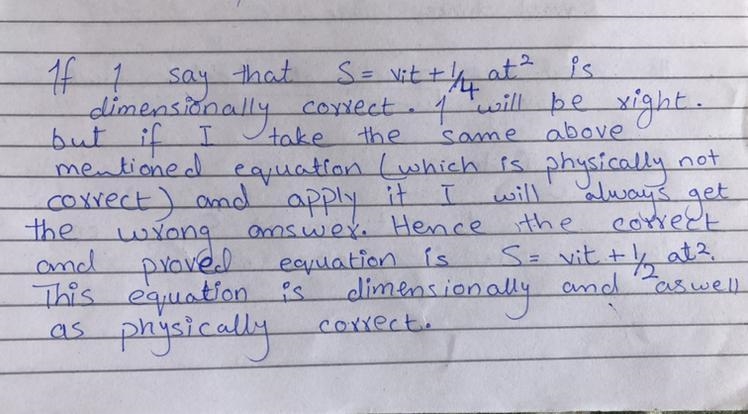 If I say that S = vit + 1/4 at² is
dimensionally correct. I will be right.
but if I take the same above
mentioned equation (which is physically not
correct) and apply it I will always get
the wrong answer. Hence the correct
and proved equation is S = vit + 1/2 at².
This equation is dimensionally and as well
as physically correct.